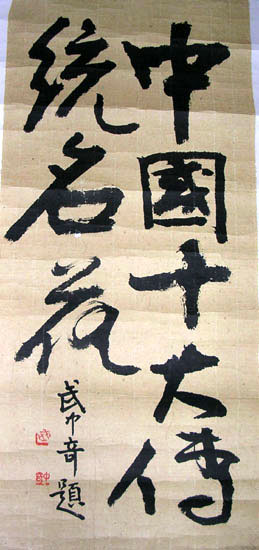 中國十大傳
統名花
武中奇題